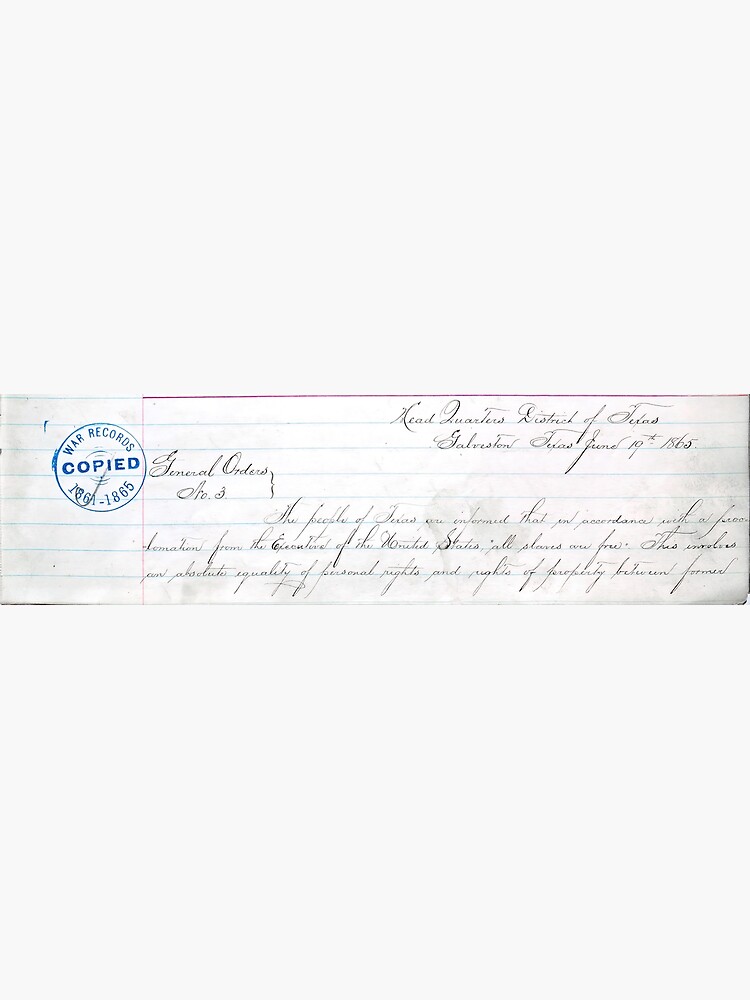 Head Quarters District of Texas
Galveston Texas June 19th 1865.
WAR RECORDS
COPIED
1861-1865
General Orders
No. 3.
The people of Texas are informed that in accordance with a proc-
lamation from the Executive of the United States "all slaves are free." This involves
an absolute equality of personal rights and rights of property between former